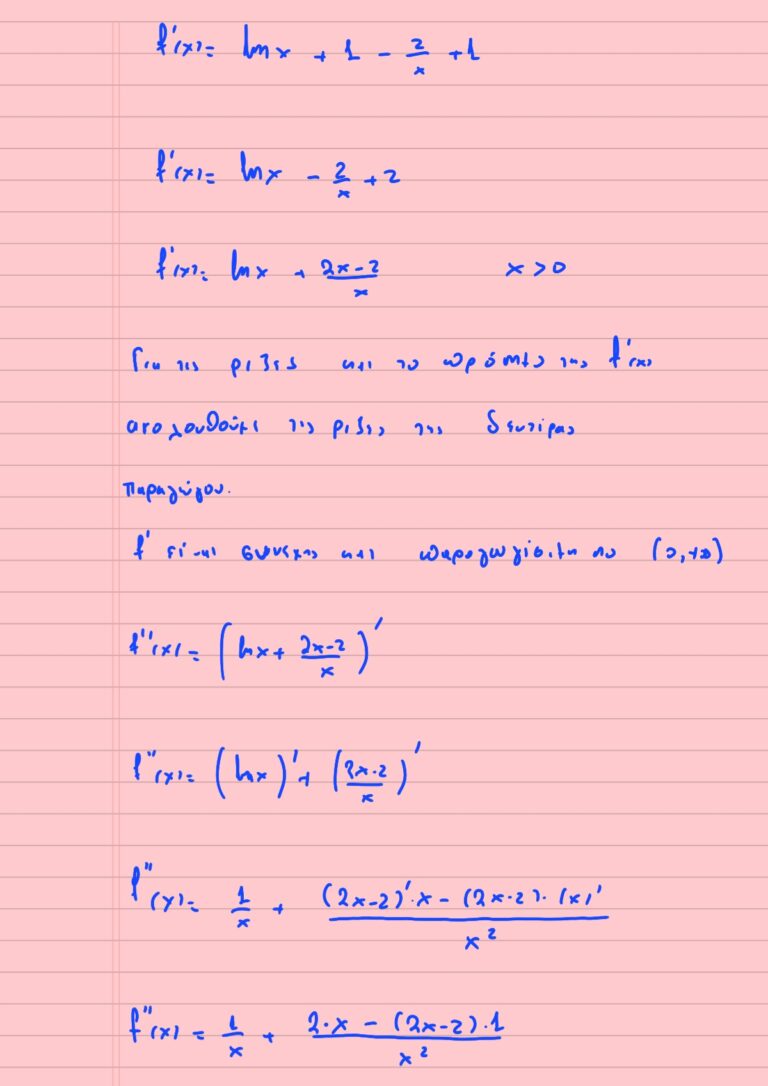 f'(x) = lnx + 1 - 2/x + 1
f'(x) = lnx - 2/x + 2
f'(x) = lnx + (2x-2)/x x > 0
Για τις ρίζες και το πρόσημο της f'(x)
ακολουθούμε τις ρίζες της δευτέρας
παραγώγου.
f' είναι συνεχής και παραγωγίσιμη στο (0,+∞)
f''(x) = (lnx + (2x-2)/x)'
f''(x) = (lnx)' + ((2x-2)/x)'
f''(x) = 1/x + ((2x-2)'·x - (2x-2)·(x)')/x²
f''(x) = 1/x + (2·x - (2x-2)·1)/x²